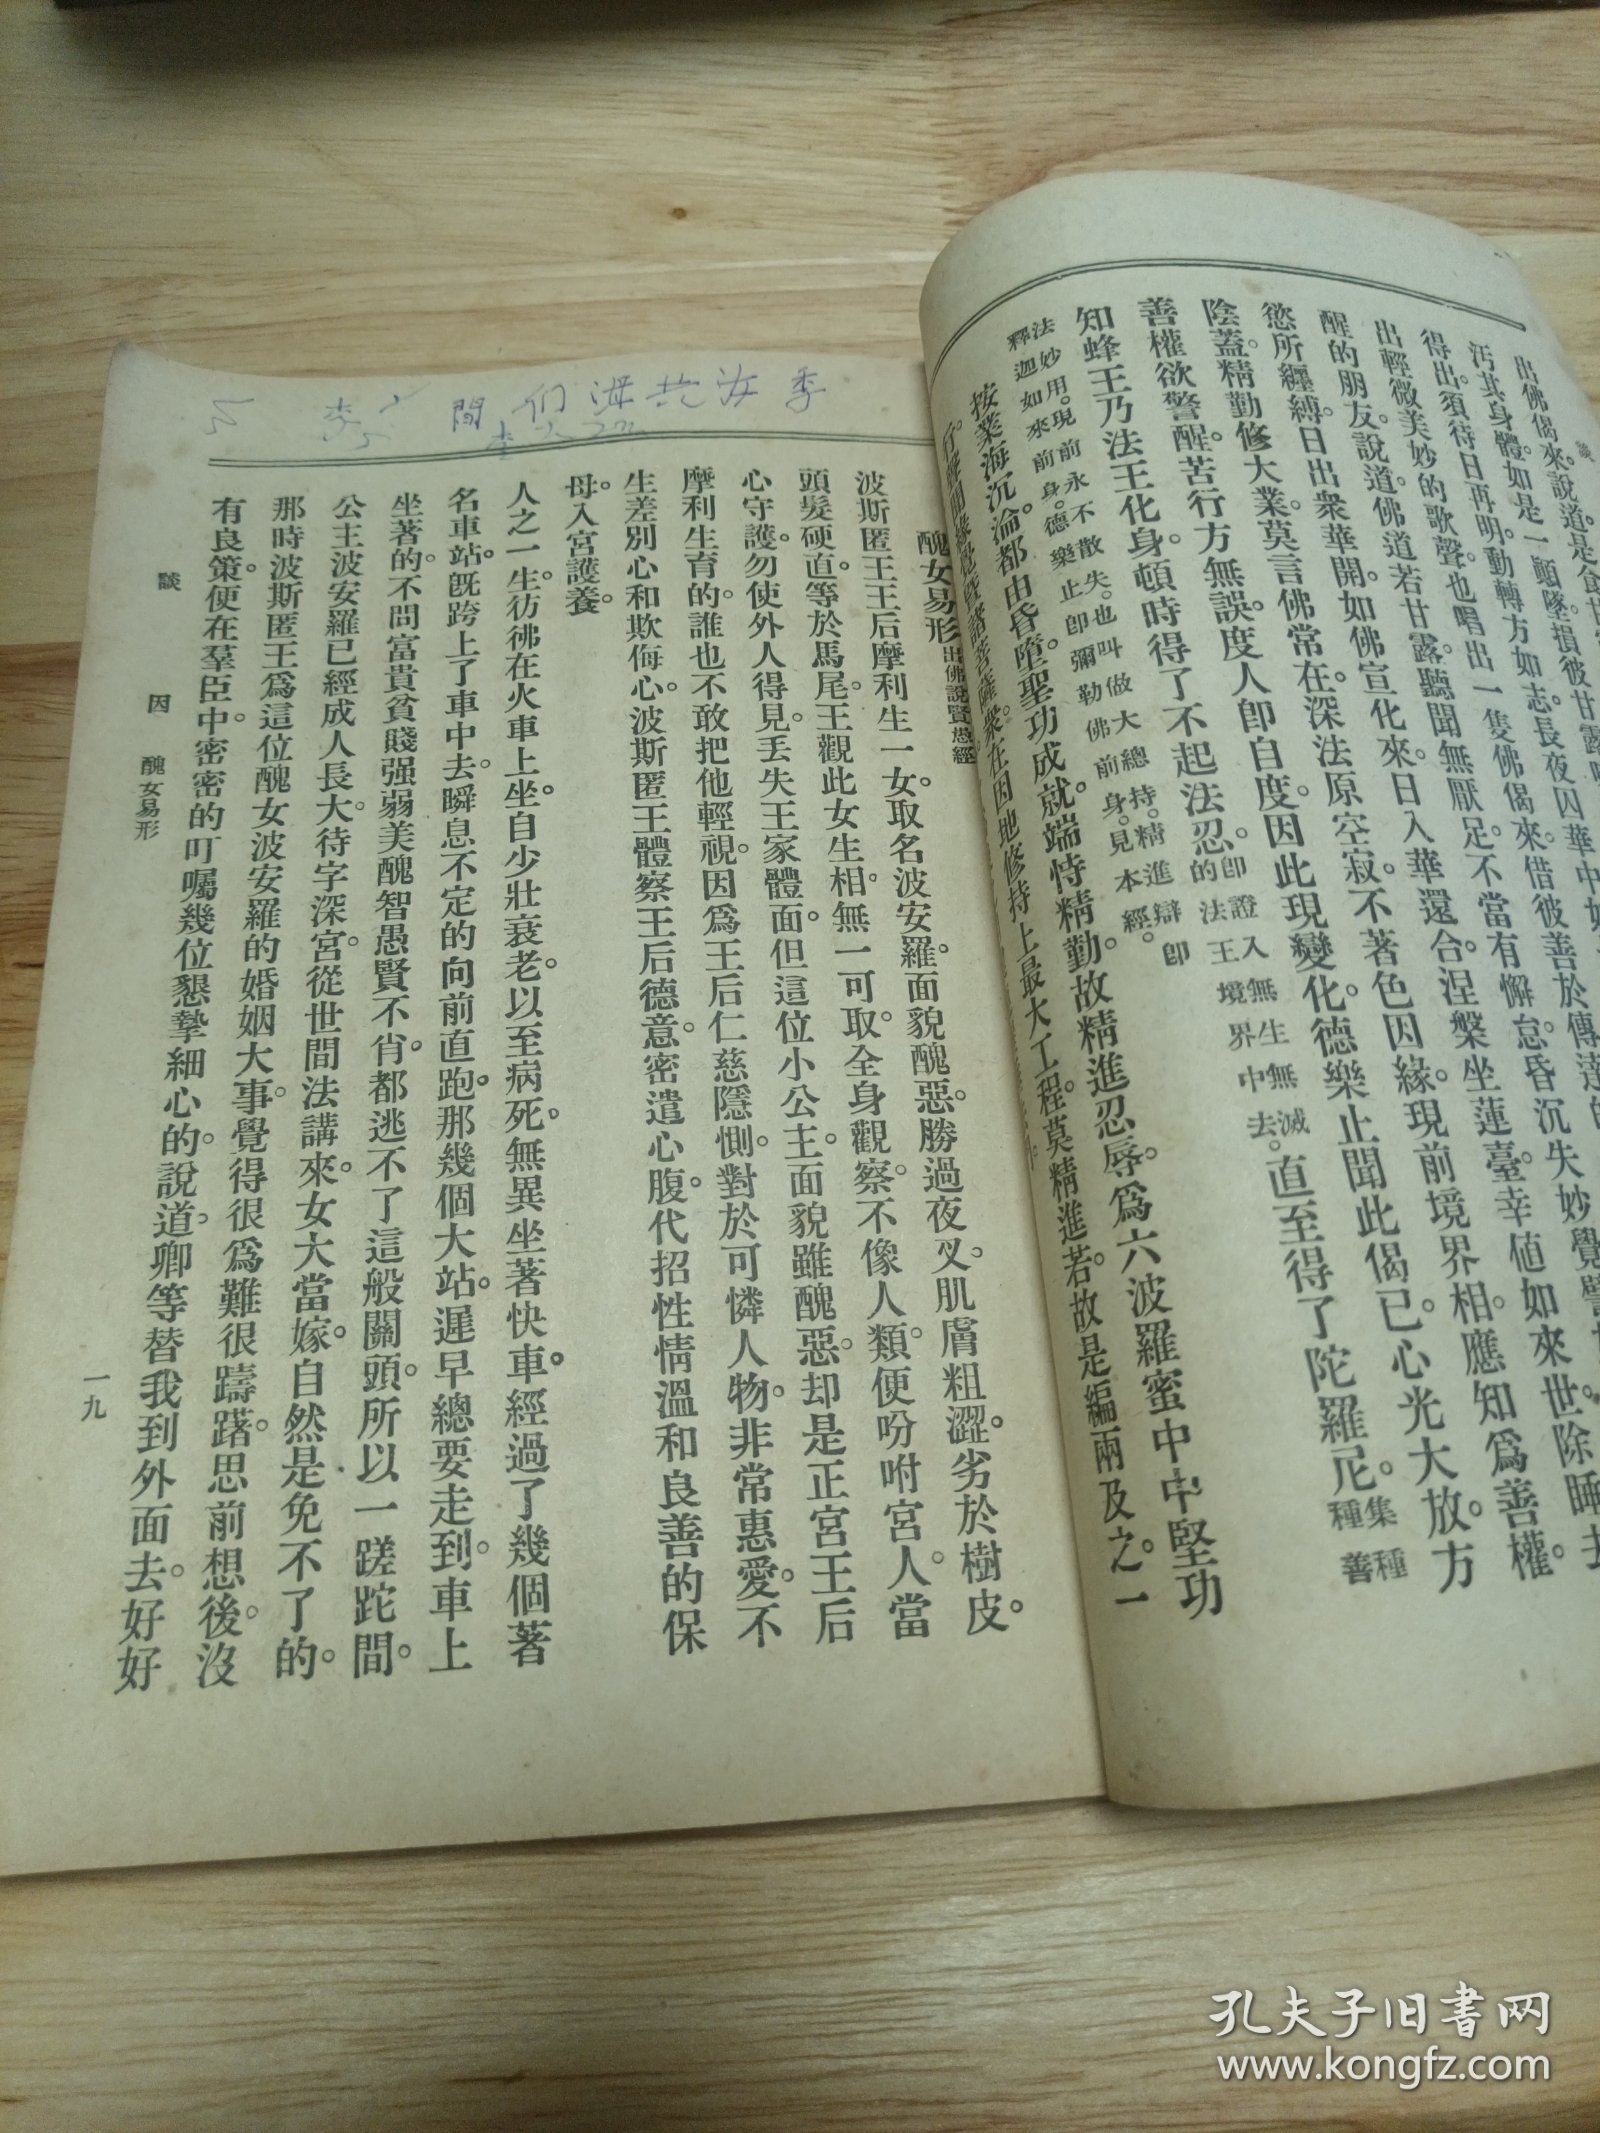 出佛偈來說道是食甘
汚其身體如是一顧墜損彼甘露
得出須待日再明動轉方如志長夜囚華中
出輕微美妙的歌聲也唱出一隻佛偈來借彼善於傳達的
醒的朋友說道佛道若甘露聽聞無厭足不當有懈怠昏沉失妙覺
慾所纏縛日出衆華開如佛宣化來日入華還合涅槃坐蓮臺幸値如來世除睡去
陰蓋精勤修大業莫言佛常在深法原空寂不著色因緣現前境界相應知爲善權
善權欲警醒苦行方無誤度人卽自度因此現變化德樂止聞此偈已心光大放方
知蜂王乃法王化身頓時得了不起法忍的卽證入無生無滅法王境界中去直至得了陀羅尼集種種善
法妙用現前永不散失也叫做大總持精進辯卽
釋迦如來前身德樂止卽彌勒佛前身見本經
按業海沉淪都由昏墮聖功成就端恃精勤故精進忍辱爲六波羅蜜中中堅功
在因地修持上最大工程莫精進若故是編兩及之一
醜女易形出佛說賢愚經
波斯匿王王后摩利生一女取名波安羅面貌醜惡勝過夜叉肌膚粗澀劣於樹皮
頭髮硬直等於馬尾王觀此女生相無一可取全身觀察不像人類便吩咐宮人當
心守護勿使外人得見丟失王家體面但這位小公主面貌雖醜惡却是正宮王后
摩利生育的誰也不敢把他輕視因爲王后仁慈隱惻對於可憐人物非常惠愛不
生差別心和欺侮心波斯匿王體察王后德意密遣心腹代招性情溫和良善的保
母入宮護養
人之一生彷彿在火車上坐自少壯衰老以至病死無異坐著快車經過了幾個著
名車站旣跨上了車中去瞬息不定的向前直跑那幾個大站遲早總要走到車上
坐著的不問富貴貧賤强弱美醜智愚賢不肖都逃不了這般關頭所以一蹉跎間
公主波安羅已經成人長大待字深宮從世間法講來女大當嫁自然是免不了的
那時波斯匿王爲這位醜女波安羅的婚姻大事覺得很爲難很躊躇思前想後沒
有良策便在羣臣中密密的叮囑幾位懇摯細心的說道卿等替我到外面去好好
談因 醜女易形 一九
孔夫子旧书网
www.kongfz.com